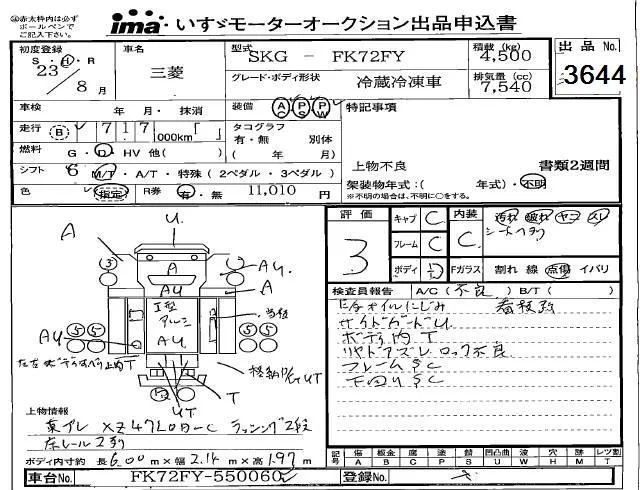 ㊟赤太枠内は必ず
ボールペンで
ご記入下さい。
ima・いすゞモーターオークション出品申込書
初度登録 S・H・R 23年 8月
車名 三菱
型式 SKG － FK72FY
積載 (kg) 4,500
出品 No. 3644
グレード・ボディ形状 冷蔵冷凍車
排気量 (cc) 7,540
車検 年・月・抹消
装備 AC PS PW
特記事項
走行 B 717,000km「 」
タコグラフ 有・無 別体
( 年 月)
燃料 G・D・HV 他( )
シフト 6 M/T・A/T・特殊 (2ペダル・3ペダル)
上物不良 書類2週間
架装物年式：( 年式)・不明
※不明の場合は、不明に○をする。
色 指定 R券 有・無 11,010 円
評価 3
キャブ C
フレーム C
ボディ D
内装 C
シートヘタリ
Fガラス 割れ 線 点傷 イバリ
検査員報告 A/C(不良) B/T( )
E/Gオイルにじみ 看板跡
サイドガードU
ボディ内T
リヤドア ロック不良
フレームSC
下回りSC
U.
A
A
AU.
A
AU
I型
アルミ
AU
AU
T
T
UT
格納P/G UT
上物情報
東プレ XZ47LOB-C ラッシング2段
床レール2列
ボディ内寸約 長6.00m×幅2.14m×高1.97m
記号 傷 板金 腐 塗 錆 凹凸曲 波 穴 跡 レツ割
A B C P S U W H M T
車台No. FK72FY-550060
登録No.